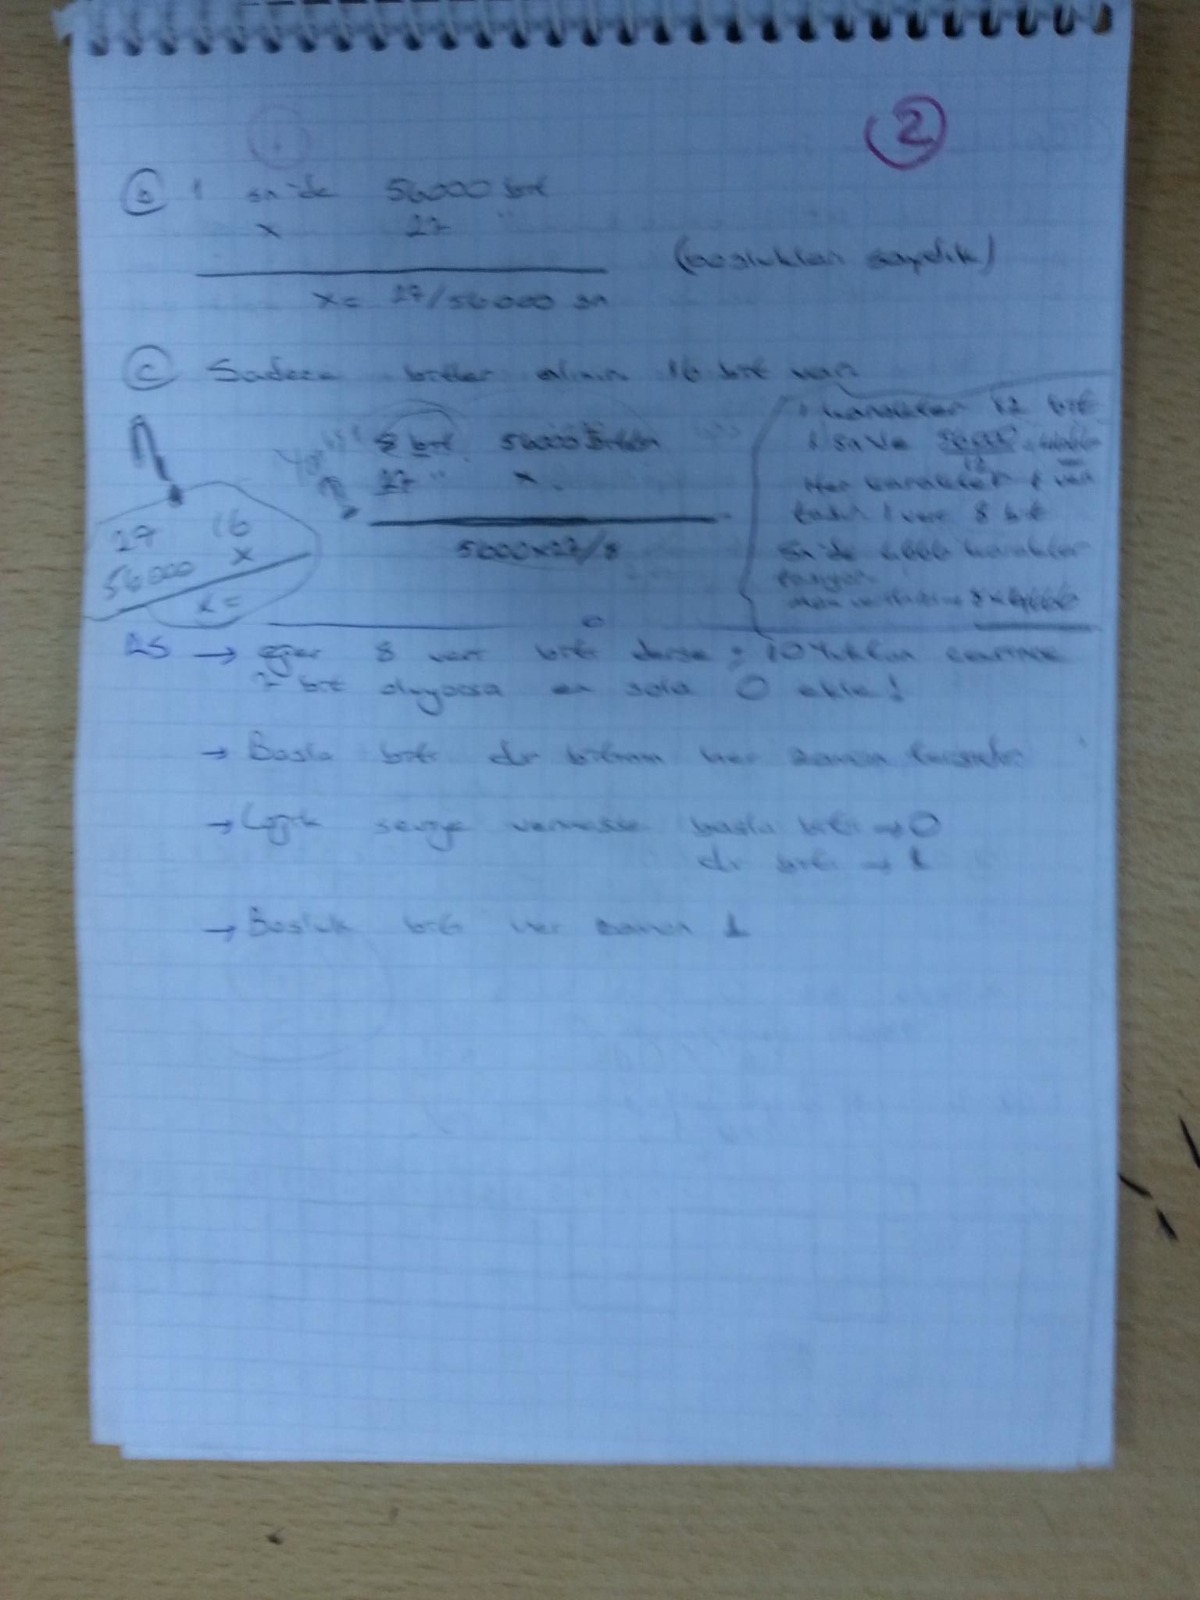 2
b 1 sn'de 56000 bit
x 27 "
(boşlukları saydık)
x = 27/56000 sn
c Sadece bitler alınır 16 bit var
8 bit 56000
27 " x
5600x27/8
27 16
56000 x
x =
1 karakter 12 bit
1 sn'de 56000
12
Her karakter
8 bit
sn'de 4666 karakter
8x4666
→ eğer 8 veri biti derse;
7 bit oluyorsa en sola 0 ekle!
→ Başla biti dur bitinin her zaman tersidir
→ Lojik seviye vermezse başla biti → 0
dur biti → 1
→ Boşluk biti her zaman 1